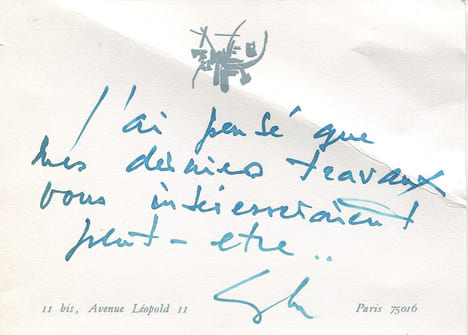 J'ai pensé que
mes derniers travaux
vous intéresseraient
peut-etre..
11 bis, Avenue Léopold 11
Paris 75016